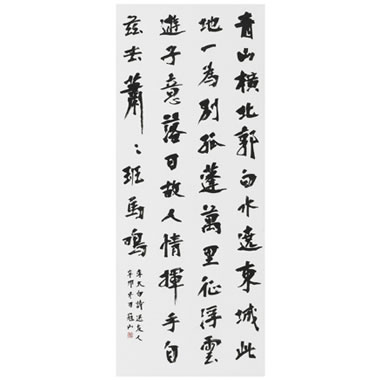 青山橫北郭白水遶東城此
地一為別孤蓬萬里征浮雲
遊子意落日故人情揮手自
茲去蕭〻班馬鳴
李太白詩送友人
辛卯冬月